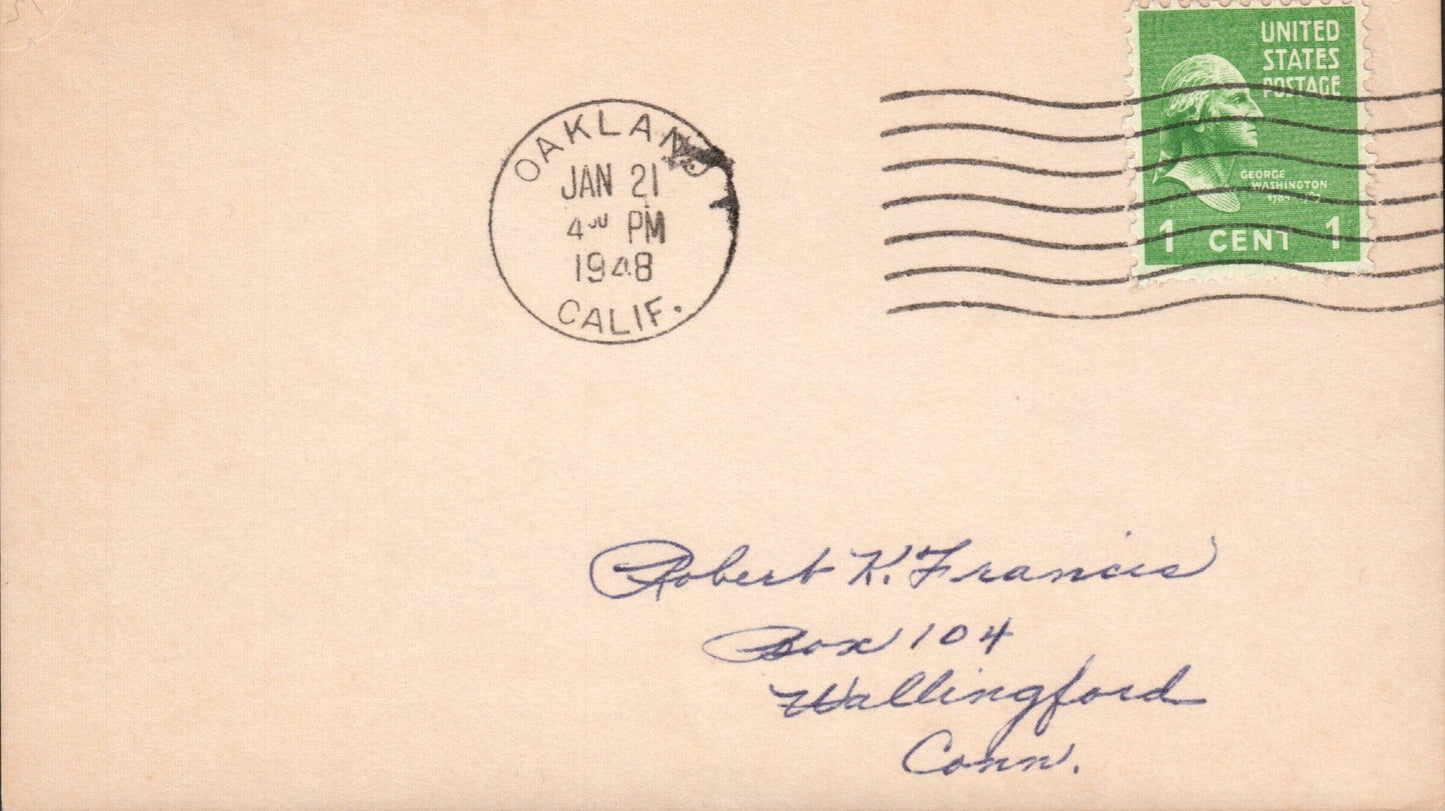 OAKLAND
JAN 21
4 00 PM
1948
CALIF.
UNITED
STATES
POSTAGE
GEORGE
WASHINGTON
1 CENT 1
Robert K. Francis
Box 104
Wallingford
Conn.